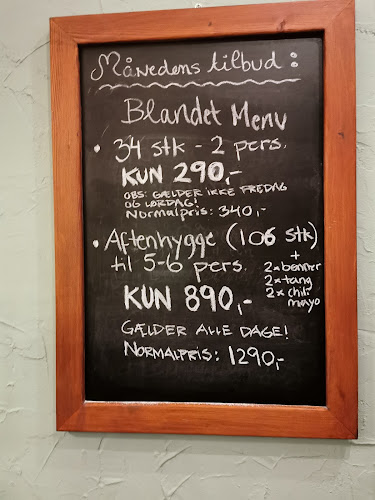 Månedens tilbud:
Blandet Menu
• 34 stk - 2 pers.
KUN 290,-
OBS: GÆLDER IKKE FREDAG
OG LØRDAG!
Normalpris: 340,-
• Aftenhygge (106 stk)
til 5-6 pers.
+
2x bønner
2x tang
2x chili
mayo
KUN 890,-
GÆLDER ALLE DAGE!
NORMALPRIS: 1290,-